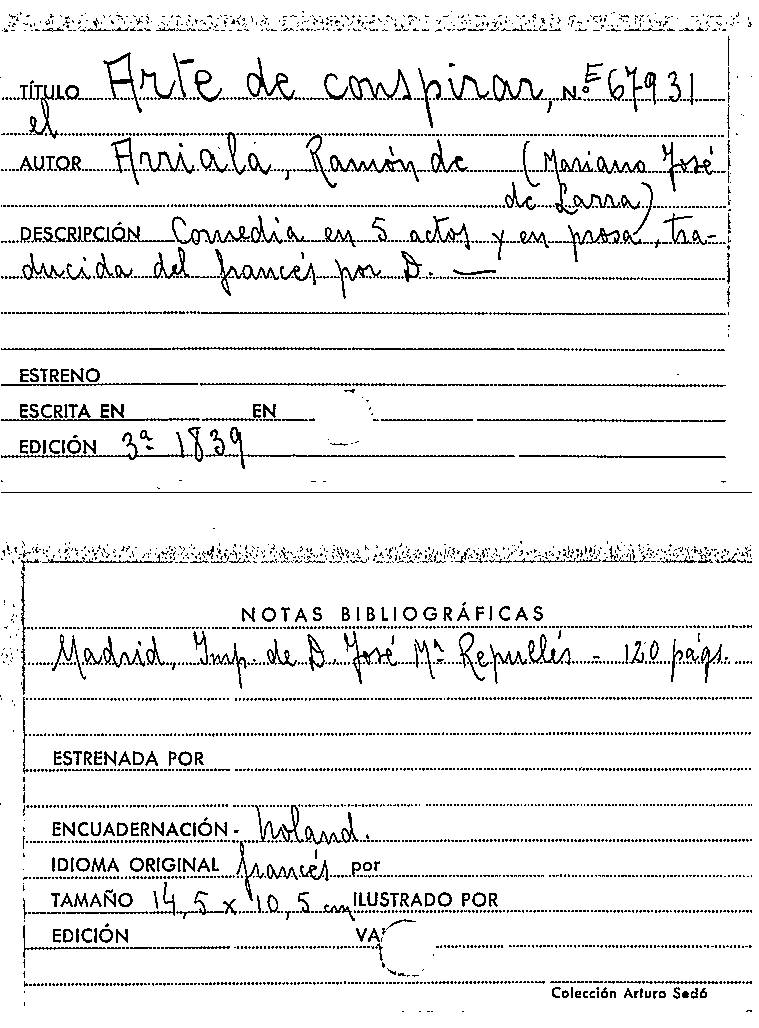 TÍTULO Arte de conspirar, N.º E 67931
el
AUTOR Arriala, Ramón de (Mariano José
de Larra)
DESCRIPCIÓN Comedia en 5 actos y en prosa, tra-
ducida del francés por D. —
ESTRENO
ESCRITA EN EN
EDICIÓN 3ª 1839
NOTAS BIBLIOGRÁFICAS
Madrid, Imp. de D. José Mª Repullés - 120 págs.
ESTRENADA POR
ENCUADERNACIÓN - holand.
IDIOMA ORIGINAL francés por
TAMAÑO 14,5 x 10,5 cm ILUSTRADO POR
EDICIÓN VA
Colección Arturo Sedó